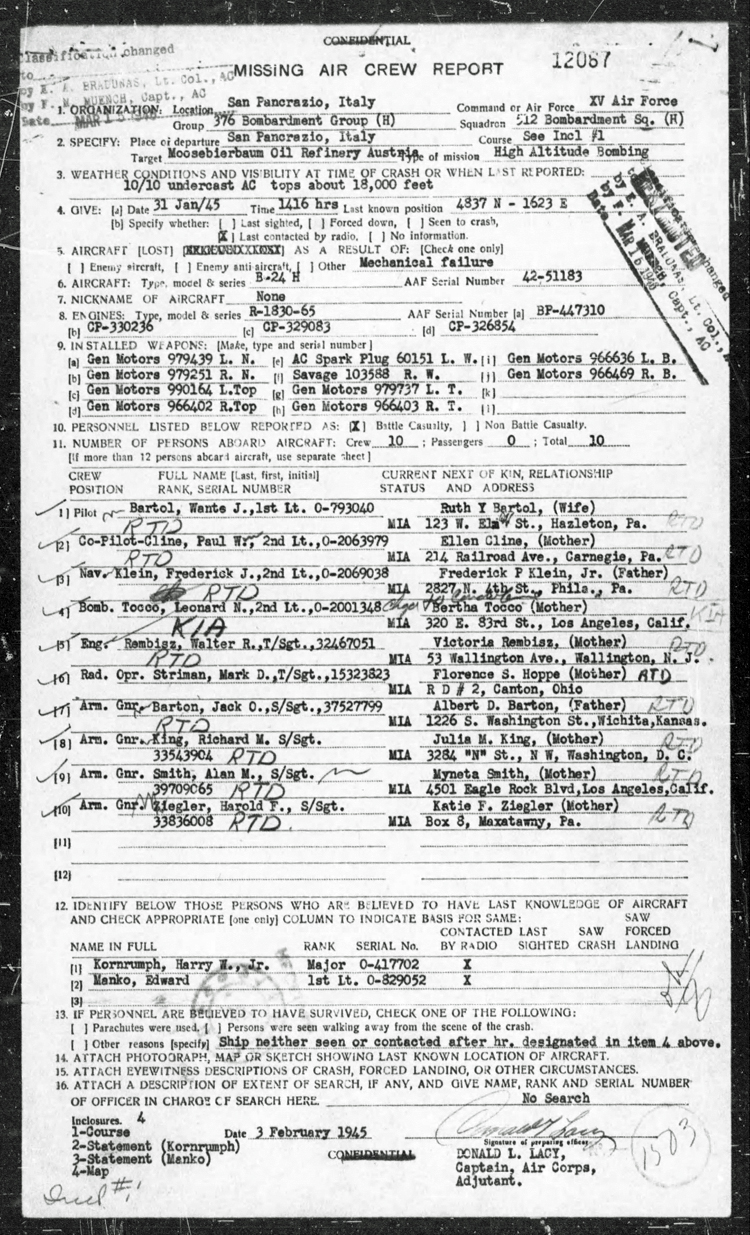 CONFIDENTIAL
Classification changed
to
by E. A. BRADUNAS, Lt. Col., AC
by F. M. MUENCH, Capt., AC
Date MAR
MISSING AIR CREW REPORT
12087
1. ORGANIZATION: Location San Pancrazio, Italy Command or Air Force XV Air Force
Group 376 Bombardment Group (H) Squadron 512 Bombardment Sq. (H)
2. SPECIFY: Place of departure San Pancrazio, Italy Course See Incl #1
Target Moosebierbaum Oil Refinery Austria Type of mission High Altitude Bombing
3. WEATHER CONDITIONS AND VISIBILITY AT TIME OF CRASH OR WHEN LAST REPORTED:
10/10 undercast AC tops about 18,000 feet
4. GIVE: [a] Date 31 Jan/45 Time 1416 hrs Last known position 4837 N - 1623 E
[b] Specify whether: [ ] Last sighted, [ ] Forced down, [ ] Seen to crash,
[X] Last contacted by radio, [ ] No information.
5. AIRCRAFT [LOST] AS A RESULT OF: [Check one only]
[ ] Enemy aircraft, [ ] Enemy anti-aircraft, [ ] Other Mechanical failure
6. AIRCRAFT: Type, model & series B-24 H AAF Serial Number 42-51183
7. NICKNAME OF AIRCRAFT None
8. ENGINES: Type, model & series R-1830-65 AAF Serial Number [a] BP-447310
[b] CP-330236 [c] CP-329083 [d] CP-326854
9. INSTALLED WEAPONS: [Make, type and serial number]
[a] Gen Motors 979439 L. N. [e] AC Spark Plug 60151 L. W. [i] Gen Motors 966636 L. B.
[b] Gen Motors 979251 R. N. [f] Savage 103588 R. W. [j] Gen Motors 966469 R. B.
[c] Gen Motors 990164 L.Top [g] Gen Motors 979737 L. T. [k]
[d] Gen Motors 966402 R.Top [h] Gen Motors 966403 R. T. [l]
10. PERSONNEL LISTED BELOW REPORTED AS: [X] Battle Casualty, [ ] Non Battle Casualty.
11. NUMBER OF PERSONS ABOARD AIRCRAFT: Crew 10 ; Passengers 0 ; Total 10
[If more than 12 persons aboard aircraft, use separate sheet]
CREW FULL NAME [Last, first, initial] CURRENT NEXT OF KIN, RELATIONSHIP
POSITION RANK, SERIAL NUMBER STATUS AND ADDRESS
[1] Pilot Bartol, Wante J.,1st Lt. O-793040 Ruth Y Bartol, (Wife)
RTD MIA 123 W. Elm St., Hazleton, Pa. RTD
[2] Co-Pilot-Cline, Paul W., 2nd Lt.,O-2063979 Ellen Cline, (Mother)
RTD MIA 214 Railroad Ave., Carnegie, Pa. RTD
[3] Nav. Klein, Frederick J.,2nd Lt.,O-2069038 Frederick P Klein, Jr. (Father)
RTD MIA 2827 N. 4th St., Phila., Pa. RTD
[4] Bomb. Tocco, Leonard N.,2nd Lt.,O-2001348 Bertha Tocco (Mother)
KIA MIA 320 E. 83rd St., Los Angeles, Calif. KIA
[5] Eng. Rembisz, Walter R.,T/Sgt.,32467051 Victoria Rembisz, (Mother)
RTD MIA 53 Wallington Ave., Wallington, N. J. RTD
[6] Rad. Opr. Striman, Mark D.,T/Sgt.,15323823 Florence S. Hoppe (Mother) RTD
MIA R D # 2, Canton, Ohio
[7] Arm. Gnr. Barton, Jack O.,S/Sgt.,37527799 Albert D. Barton, (Father) RTD
RTD MIA 1226 S. Washington St.,Wichita,Kansas.
[8] Arm. Gnr. King, Richard M. S/Sgt. Julia M. King, (Mother) RTD
33543904 RTD MIA 3284 "N" St., N W, Washington, D. C.
[9] Arm. Gnr. Smith, Alan M., S/Sgt. Myneta Smith, (Mother) RTD
39709065 RTD MIA 4501 Eagle Rock Blvd,Los Angeles,Calif.
[10] Arm. Gnr. Ziegler, Harold F., S/Sgt. Katie F. Ziegler (Mother)
33836008 RTD. MIA Box 8, Maxatawny, Pa. RTD
[11]
[12]
12. IDENTIFY BELOW THOSE PERSONS WHO ARE BELIEVED TO HAVE LAST KNOWLEDGE OF AIRCRAFT
AND CHECK APPROPRIATE [one only] COLUMN TO INDICATE BASIS FOR SAME: SAW
CONTACTED LAST SAW FORCED
NAME IN FULL RANK SERIAL No. BY RADIO SIGHTED CRASH LANDING
[1] Kornrumph, Harry W., Jr. Major O-417702 X
[2] Manko, Edward 1st Lt. O-829052 X
[3]
13. IF PERSONNEL ARE BELIEVED TO HAVE SURVIVED, CHECK ONE OF THE FOLLOWING:
[ ] Parachutes were used, [ ] Persons were seen walking away from the scene of the crash.
[ ] Other reasons [specify] Ship neither seen or contacted after hr. designated in item 4 above.
14. ATTACH PHOTOGRAPH, MAP OR SKETCH SHOWING LAST KNOWN LOCATION OF AIRCRAFT.
15. ATTACH EYEWITNESS DESCRIPTIONS OF CRASH, FORCED LANDING, OR OTHER CIRCUMSTANCES.
16. ATTACH A DESCRIPTION OF EXTENT OF SEARCH, IF ANY, AND GIVE NAME, RANK AND SERIAL NUMBER
OF OFFICER IN CHARGE OF SEARCH HERE. No Search
Inclosures. 4
1-Course Date 3 February 1945
Signature of preparing officer
2-Statement (Kornrumph) CONFIDENTIAL DONALD L. LACY,
3-Statement (Manko) Captain, Air Corps,
4-Map Adjutant.
1503
Incl #1